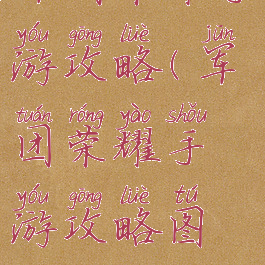 yóu gōng lüè jūn
游攻略(军
tuán róng yào shǒu
团荣耀手
yóu gōng lüè tú
游攻略图